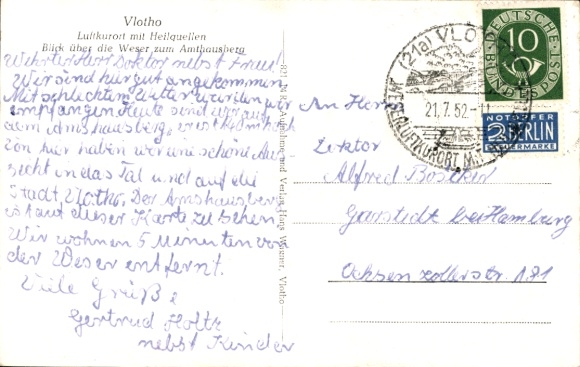 Vlotho
Luftkurort mit Heilquellen
Blick über die Weser zum Amthausberg
Wehrter Herr Doktor nebst Frau!
Wir sind hier gut angekommen
Mit schlechtem Wetter wurden wir
empfangen Heute sind wir auf
dem Amshausberg,
von hier haben wir eine schöne Aus
sicht in das Tal und auf die
Stadt Vlotho. Der Amshausberg
ist auf dieser Karte zu sehen
Wir wohnen 5 Minuten von
der Weser entfernt.
Viele Grüße
Gertrud Holtz
nebst Kinder
und Verlag Hans Wagner, Vlotho
(21a) VLO
21.7.52
LUFTKURORT
DEUTSCHE
BUNDESPOST
10
NOTOPFER
2 BERLIN
STEUERMARKE
An Herr
Doktor
Alfred
Garstedt bei Hamburg
Ochsenzollerstr. 181